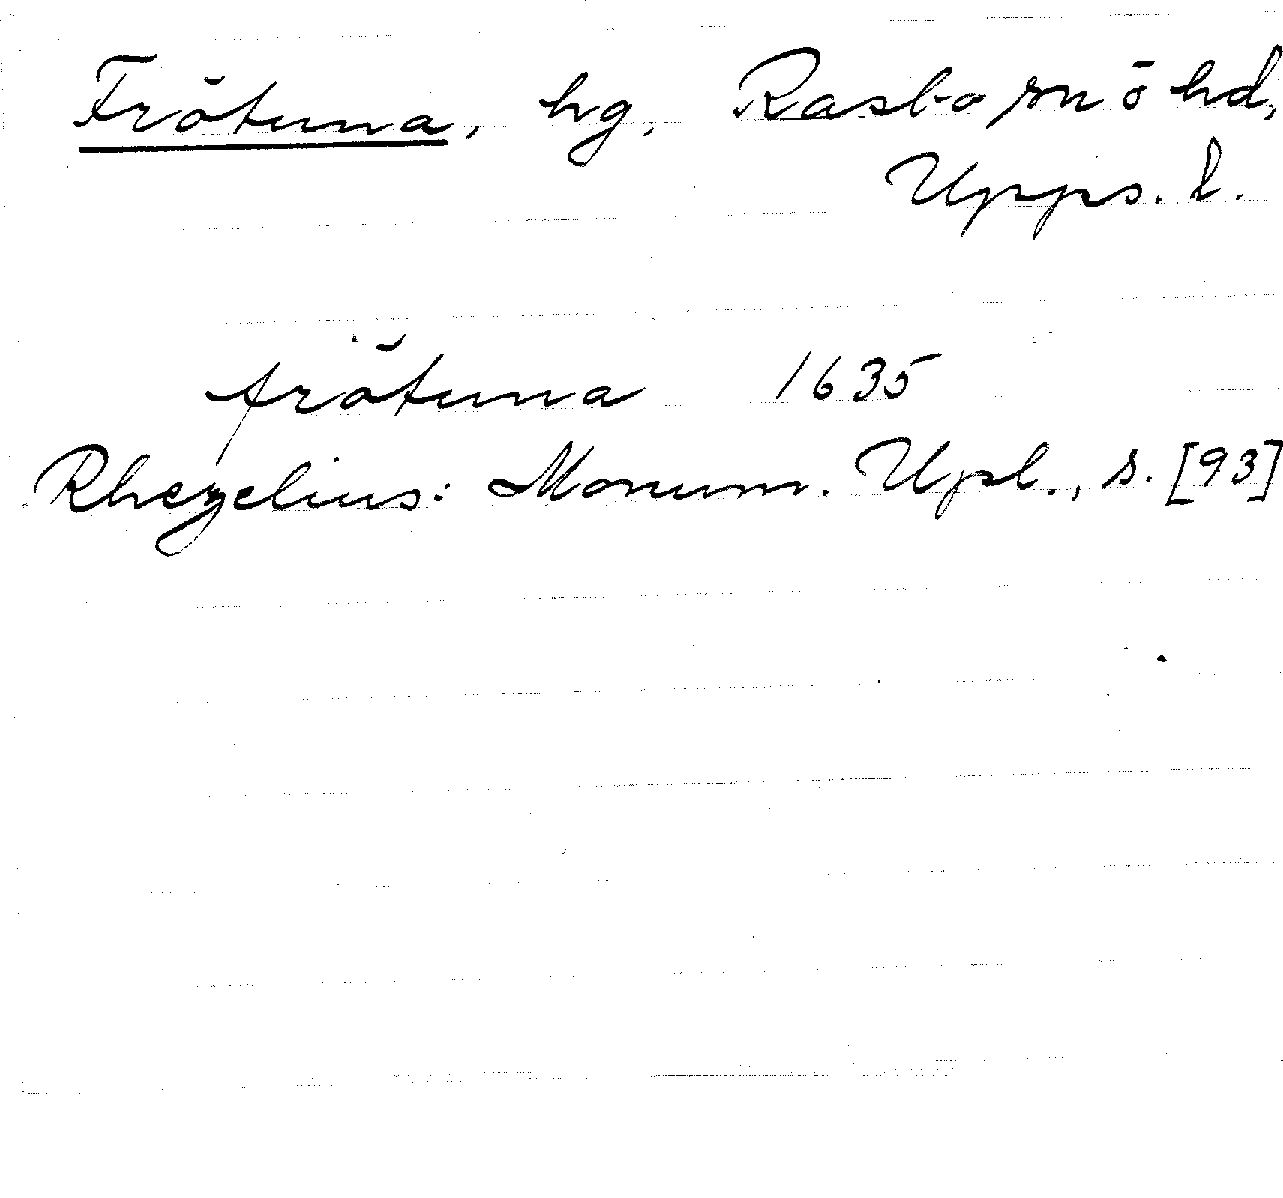 Frötuna, hg, Rasbo sn ö hd,
Upps. l.
frötuna 1635
Rhezelius: Monum. Upl., s. [93]